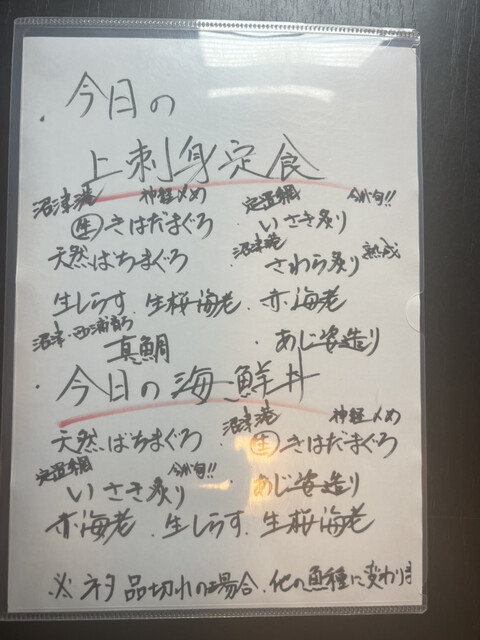 ・今日の
上刺身定食
沼津港 神経〆め 定置網 今が旬!!
生きはだまぐろ ・いさき炙り
沼津港
天然ばちまぐろ ・さわら炙り 熟成
生しらす・生桜海老・赤海老
沼津・西浦育ち
真鯛 ・あじ姿造り
・今日の海鮮丼
沼津港 神経〆め
天然ばちまぐろ ・生きはだまぐろ
定置網 今が旬!!
いさき炙り あじ姿造り
赤海老・生しらす・生桜海老
※ネタ品切れの場合、他の魚種に変わりま